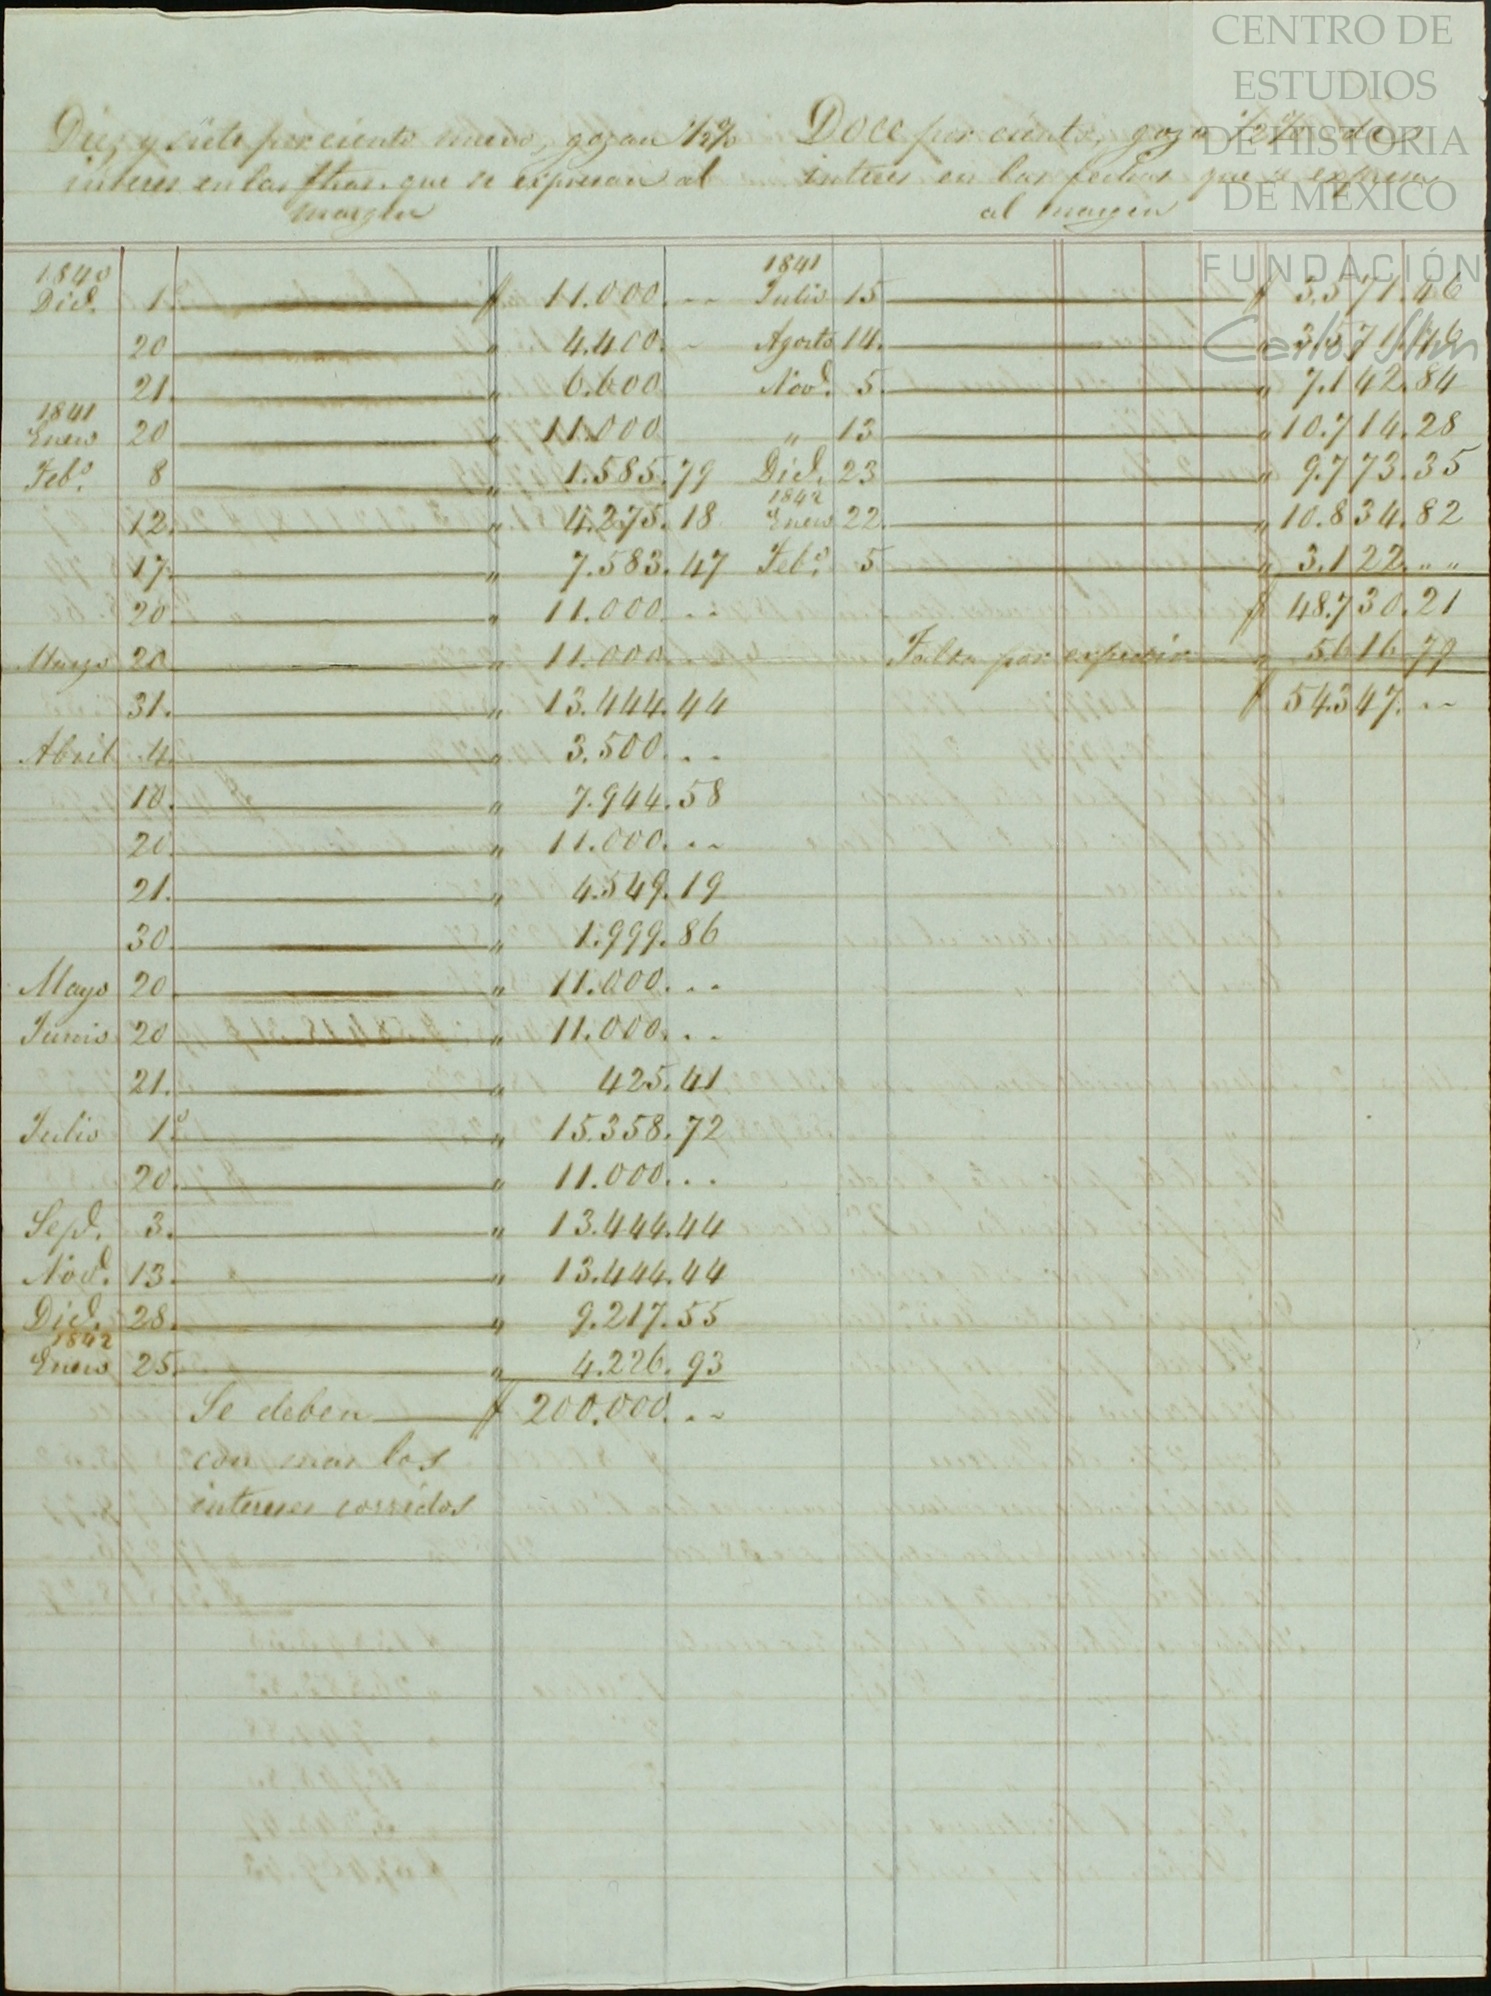 Diez y siete por ciento nuevo, gozan 1/2 %
interes en las fhas. que se espresan al
margen
1840
Dice. 1º $ 11.000. --
20 " 4.400. -
21. " 6.600
1841
Enero 20 " 11.000
Febo. 8 " 1.585. 79
12. " 4.275. 18
17. " 7.583. 47
20. " 11.000. --
Marzo 20 " 11.000
31. " 13.444. 44
Abril 4. " 3.500. --
10. " 7.944. 58
20. " 11.000. --
21. " 4.549. 19
30. " 1.999. 86
Mayo 20. " 11.000. --
Junio 20 " 11.000. --
21. " 425. 41
Julio 1º " 15.358. 72
20. " 11.000. --
Sepe. 3. " 13.444. 44
Nove. 13. " 13.444. 44
Dice. 28. " 9.217. 55
1842
Enero 25. " 4.226. 93
Se deben $ 200.000. --
con mas los
intereses corridos
Doce por ciento, goza 1/2 % de
interes en las fechas que se espresa
al margen
1841
Julio 15 $ 3.571. 46
Agosto 14. " 3.571. 46
Nove. 5. " 7.142. 84
" 13 " 10.714. 28
Dice. 23 " 9.773. 35
1842
Enero 22. " 10.834. 82
Febo. 5 " 3.122. " "
$ 48.730. 21
Falta por espedir " 5.616 79
$ 54.347. --
CENTRO DE
ESTUDIOS
DE HISTORIA
DE MÉXICO
FUNDACIÓN
Carlos Slim